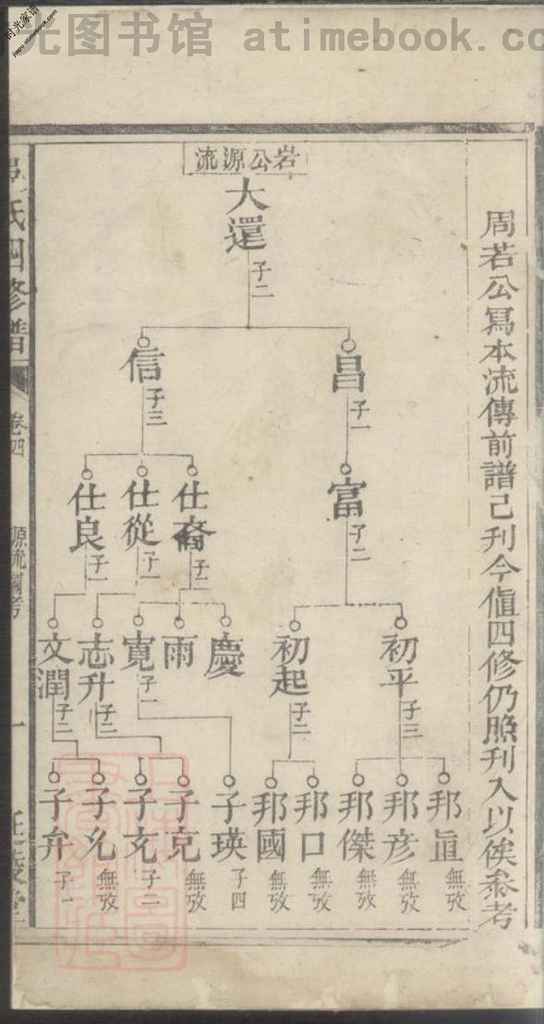 光图书馆 atimebook.co
时光家谱
周若公寫本流傳前譜已刋今值四修仍照刋入以俟參考
岩公源流
大還
子二
昌
子一
信
子三
富
子二
仕裔
子三
仕從
子一
仕良
子一
初平
子三
初起
子二
慶
雨
寬
子一
志升
子二
文潤
子二
邦直
無攷
邦彦
無攷
邦傑
無攷
邦口
無攷
邦國
無攷
子瑛
子四
子克
無攷
子玄
子二
子允
無攷
子弁
子一
氏四修譜
卷四
源流圖考
一